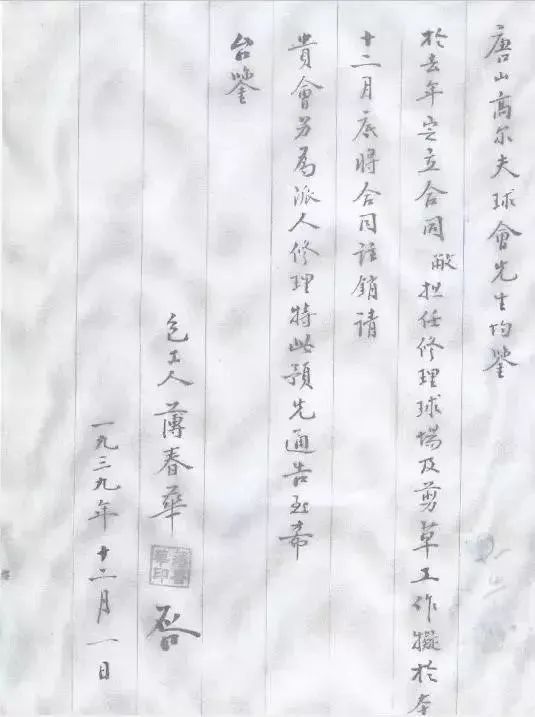 唐山高尔夫球會先生均鑒
於去年定立合同敝担任修理球場及剪草工作擬於本
十二月底將合同註銷請
貴會另為派人修理特此預先通告至希
台鑒
包工人薄春華 啟
一九三九年十二月一日